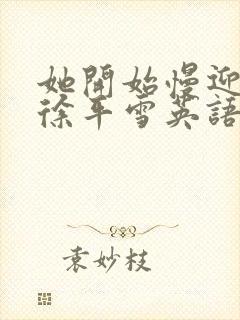 她開始慢迎
徐平雪英語
袁妙枝